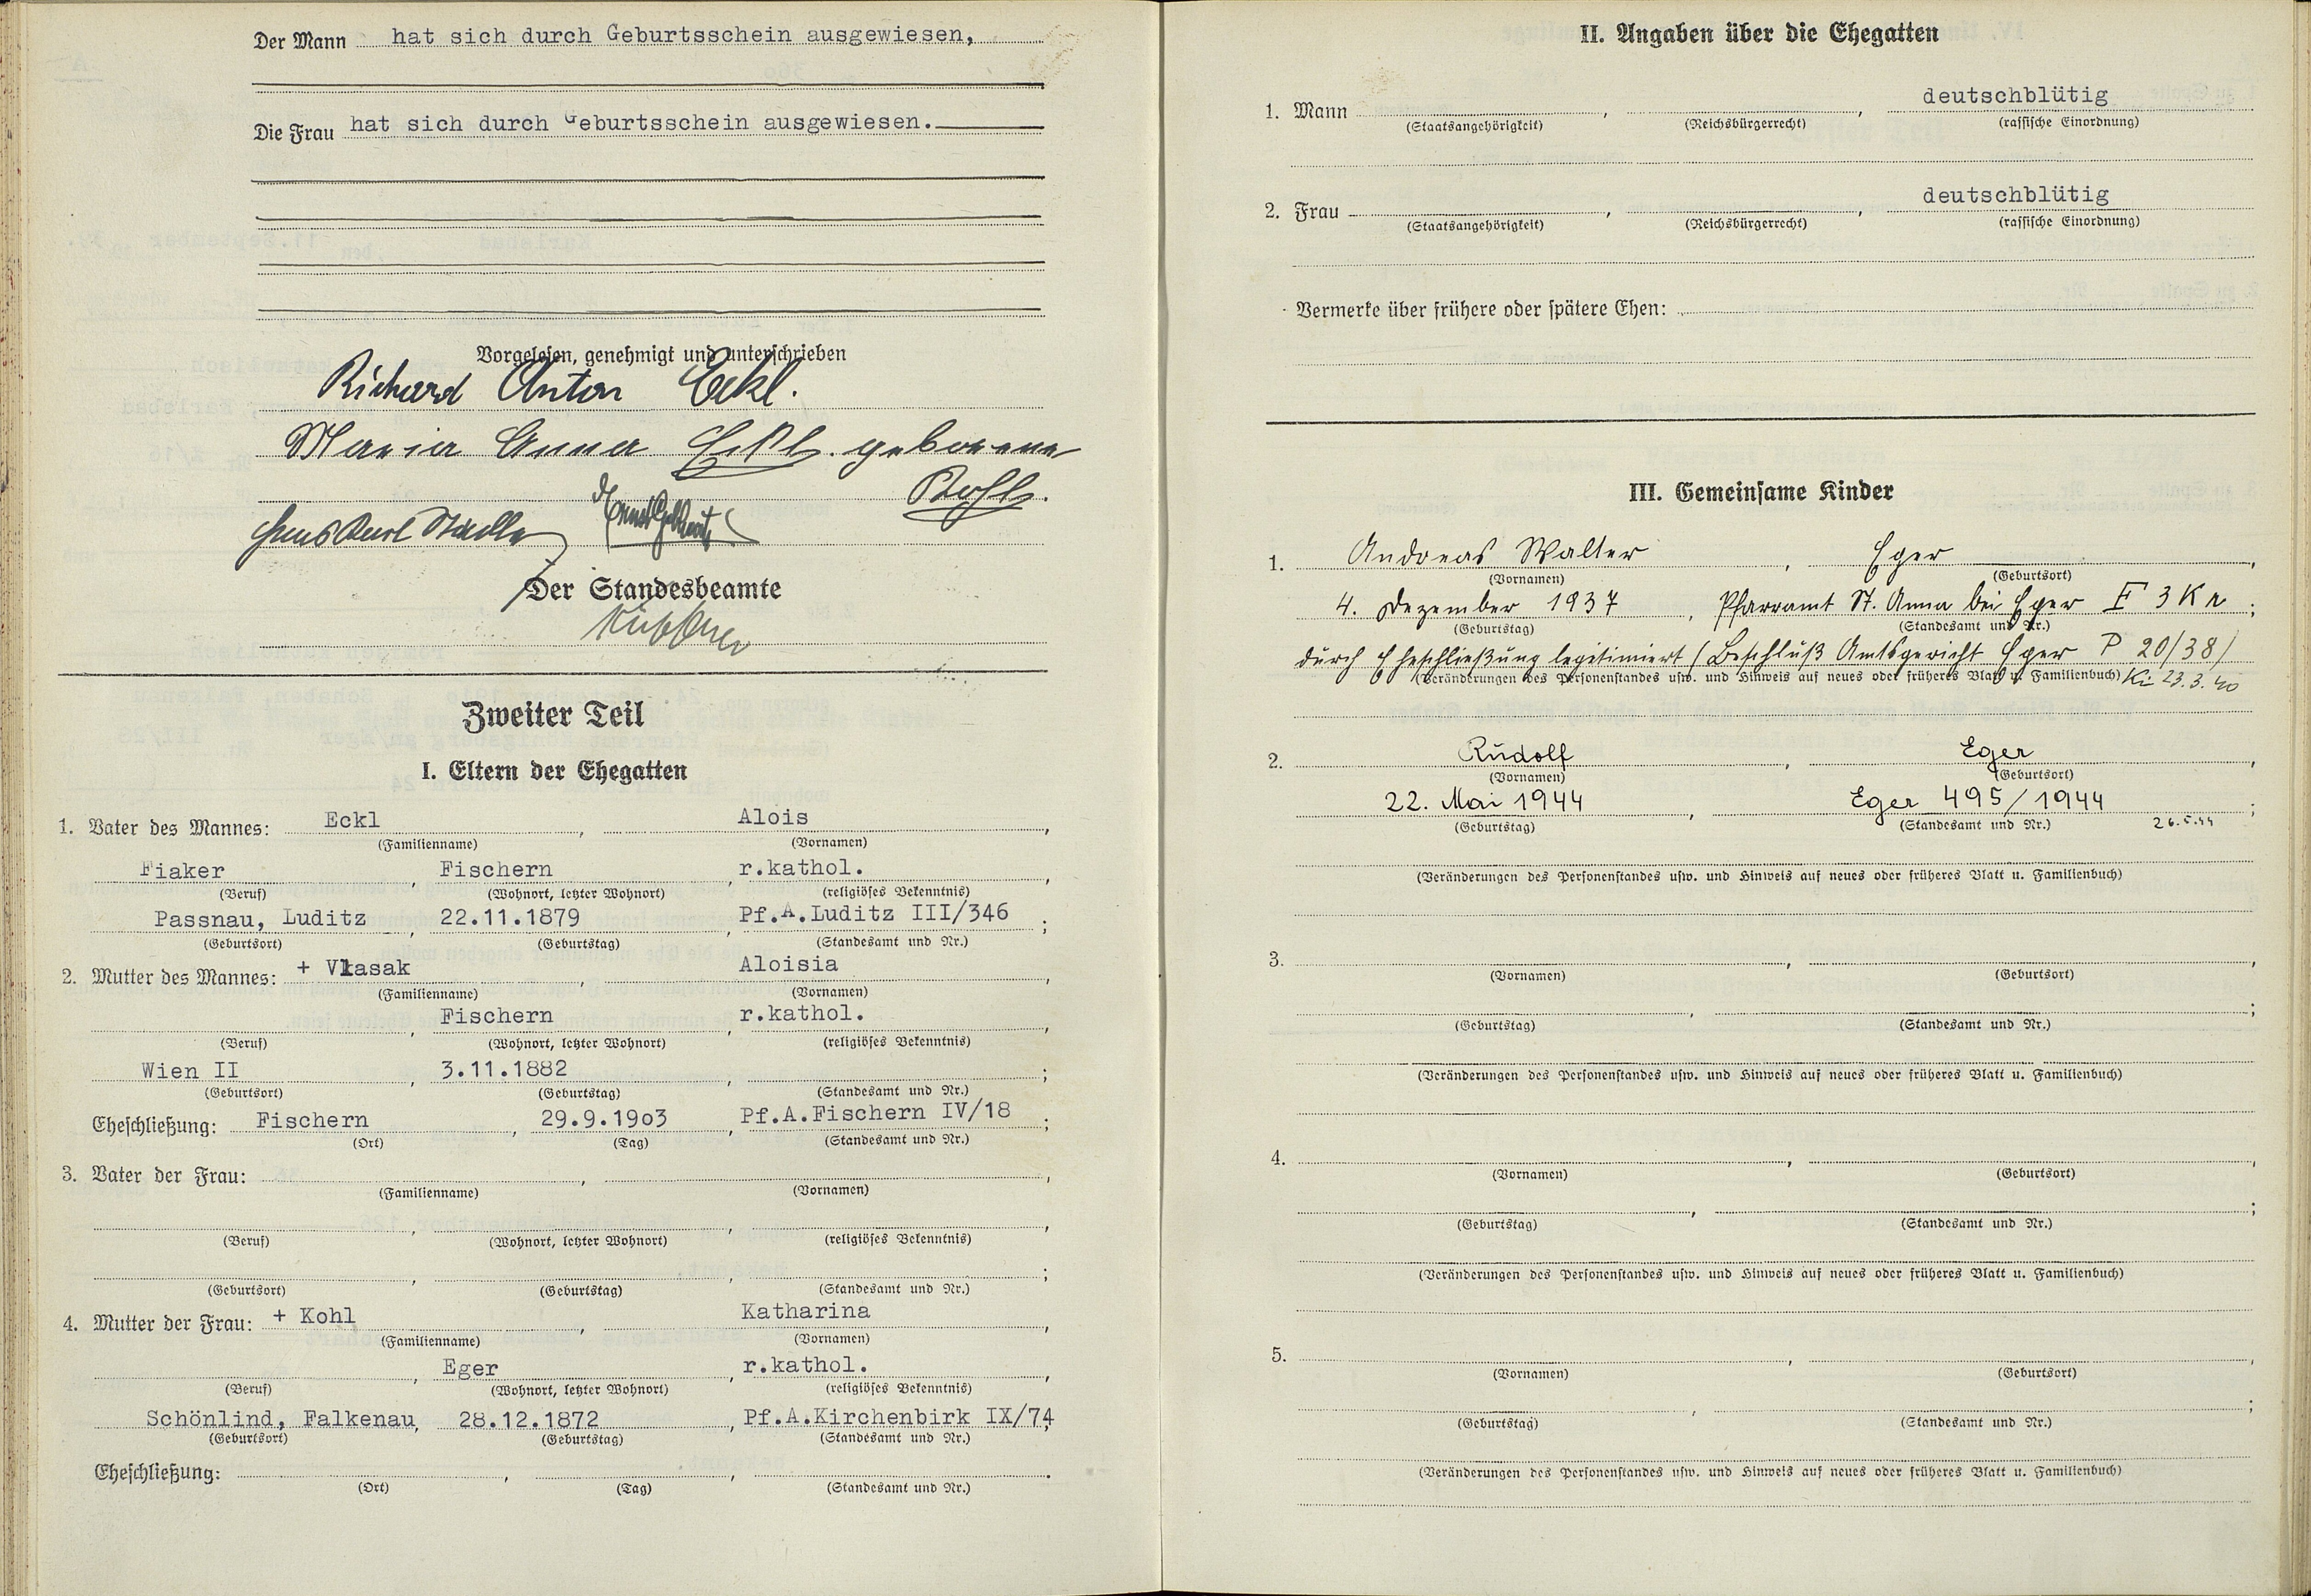 Der Mann hat sich durch Geburtsschein ausgewiesen,
Die Frau hat sich durch Geburtsschein ausgewiesen.
Vorgelesen, genehmigt und unterschrieben
Richard Anton Eckl.
Maria Anna Eckl. geborene
Kohl.
Hans Karl Stadler
Der Standesbeamte
Zweiter Teil
I. Eltern der Ehegatten
1. Vater des Mannes: Eckl, Alois,
(Familienname) (Vornamen)
Fiaker, Fischern, r.kathol.,
(Beruf) (Wohnort, letzter Wohnort) (religiöses Bekenntnis)
Passnau, Luditz, 22.11.1879, Pf.A.Luditz III/346;
(Geburtsort) (Geburtstag) (Standesamt und Nr.)
2. Mutter des Mannes: + Vlasak, Aloisia,
(Familienname) (Vornamen)
, Fischern, r.kathol.,
(Beruf) (Wohnort, letzter Wohnort) (religiöses Bekenntnis)
Wien II, 3.11.1882, ;
(Geburtsort) (Geburtstag) (Standesamt und Nr.)
Eheschließung: Fischern, 29.9.19o3, Pf.A.Fischern IV/18;
(Ort) (Tag) (Standesamt und Nr.)
3. Vater der Frau: , ,
(Familienname) (Vornamen)
, , ,
(Beruf) (Wohnort, letzter Wohnort) (religiöses Bekenntnis)
, , ;
(Geburtsort) (Geburtstag) (Standesamt und Nr.)
4. Mutter der Frau: + Kohl, Katharina,
(Familienname) (Vornamen)
, Eger, r.kathol.,
(Beruf) (Wohnort, letzter Wohnort) (religiöses Bekenntnis)
Schönlind, Falkenau, 28.12.1872, Pf.A.Kirchenbirk IX/74;
(Geburtsort) (Geburtstag) (Standesamt und Nr.)
Eheschließung: , , .
(Ort) (Tag) (Standesamt und Nr.)
II. Angaben über die Ehegatten
1. Mann , , deutschblütig
(Staatsangehörigkeit) (Reichsbürgerrecht) (rassische Einordnung)
2. Frau , , deutschblütig
(Staatsangehörigkeit) (Reichsbürgerrecht) (rassische Einordnung)
Vermerke über frühere oder spätere Ehen:
III. Gemeinsame Kinder
1. Andreas Walter, Eger,
(Vornamen) (Geburtsort)
4. Dezember 1937, Pfarramt St. Anna bei Eger F 3 K 2;
(Geburtstag) (Standesamt und Nr.)
durch Eheschließung legitimiert (Beschluß Amtsgericht Eger P 20/38)
(Veränderungen des Personenstandes usw. und Hinweis auf neues oder früheres Blatt u. Familienbuch) Ki 23.3.40
2. Rudolf, Eger,
(Vornamen) (Geburtsort)
22. Mai 1944, Eger 495/1944;
(Geburtstag) (Standesamt und Nr.) 26.5.44
(Veränderungen des Personenstandes usw. und Hinweis auf neues oder früheres Blatt u. Familienbuch)
3. , ,
(Vornamen) (Geburtsort)
;
(Geburtstag) (Standesamt und Nr.)
(Veränderungen des Personenstandes usw. und Hinweis auf neues oder früheres Blatt u. Familienbuch)
4. , ,
(Vornamen) (Geburtsort)
, ;
(Geburtstag) (Standesamt und Nr.)
(Veränderungen des Personenstandes usw. und Hinweis auf neues oder früheres Blatt u. Familienbuch)
5. , ,
(Vornamen) (Geburtsort)
, ;
(Geburtstag) (Standesamt und Nr.)
(Veränderungen des Personenstandes usw. und Hinweis auf neues oder früheres Blatt u. Familienbuch)